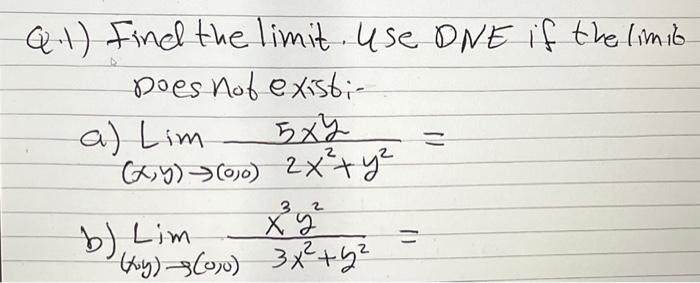 Q.1) Find the limit. Use DNE if the limit
Does Not exist:-
a) Lim 5xy =
(x,y)→(0,0) 2x²+y²
b) Lim x³y² =
(x,y)→(0,0) 3x²+y²